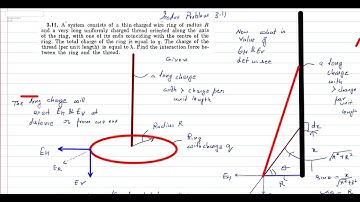 Irodov Problem 3.11
3.11. A system consists of a thin charged wire ring of radius R
and a very long uniformly charged thread oriented along the axis
of the ring, with one of its ends coinciding with the centre of the
ring. The total charge of the ring is equal to q. The charge of
the thread (per unit length) is equal to λ. Find the interaction force
between the ring and the thread.
Given
a long
charge
with λ charge per
unit length
The long charge will
exert EH & EV at
distance R from one end
Radius R
Ring
with charge q
EH
ER
EV
Now what is
value of
EH & EV
let us see
a long
charge
with
λ charge
per
unit
length
dx
x
√R²+x²
EH
θ
R
sinθ = x
√R²+x²